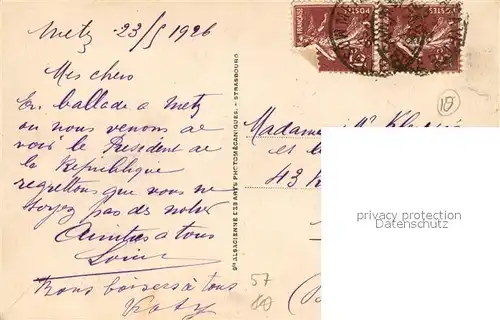 Metz 23/5 1926
Mes chers
En ballade a Metz
ou nous venons de
voir le Président de
la République
regrettons que vous ne
soyez pas des notres
Amitiés a tous
Bons baisers à tous
Sté ALSACIENNE DES ARTS PHOTOMÉCANIQUES. - STRASBOURG
POSTES
FRANÇAISE
POSTES
Madame
et
43
57
privacy protection
Datenschutz